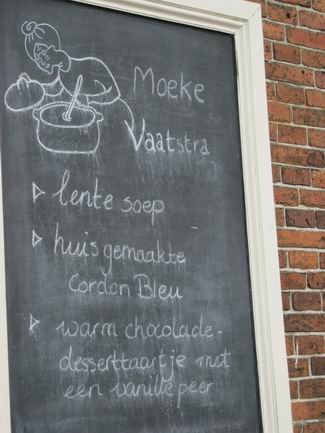 Moeke
Vaatstra
lente soep
huisgemaakte
Cordon Bleu
warm chocolade-
desserttaartje met
een vanille peer